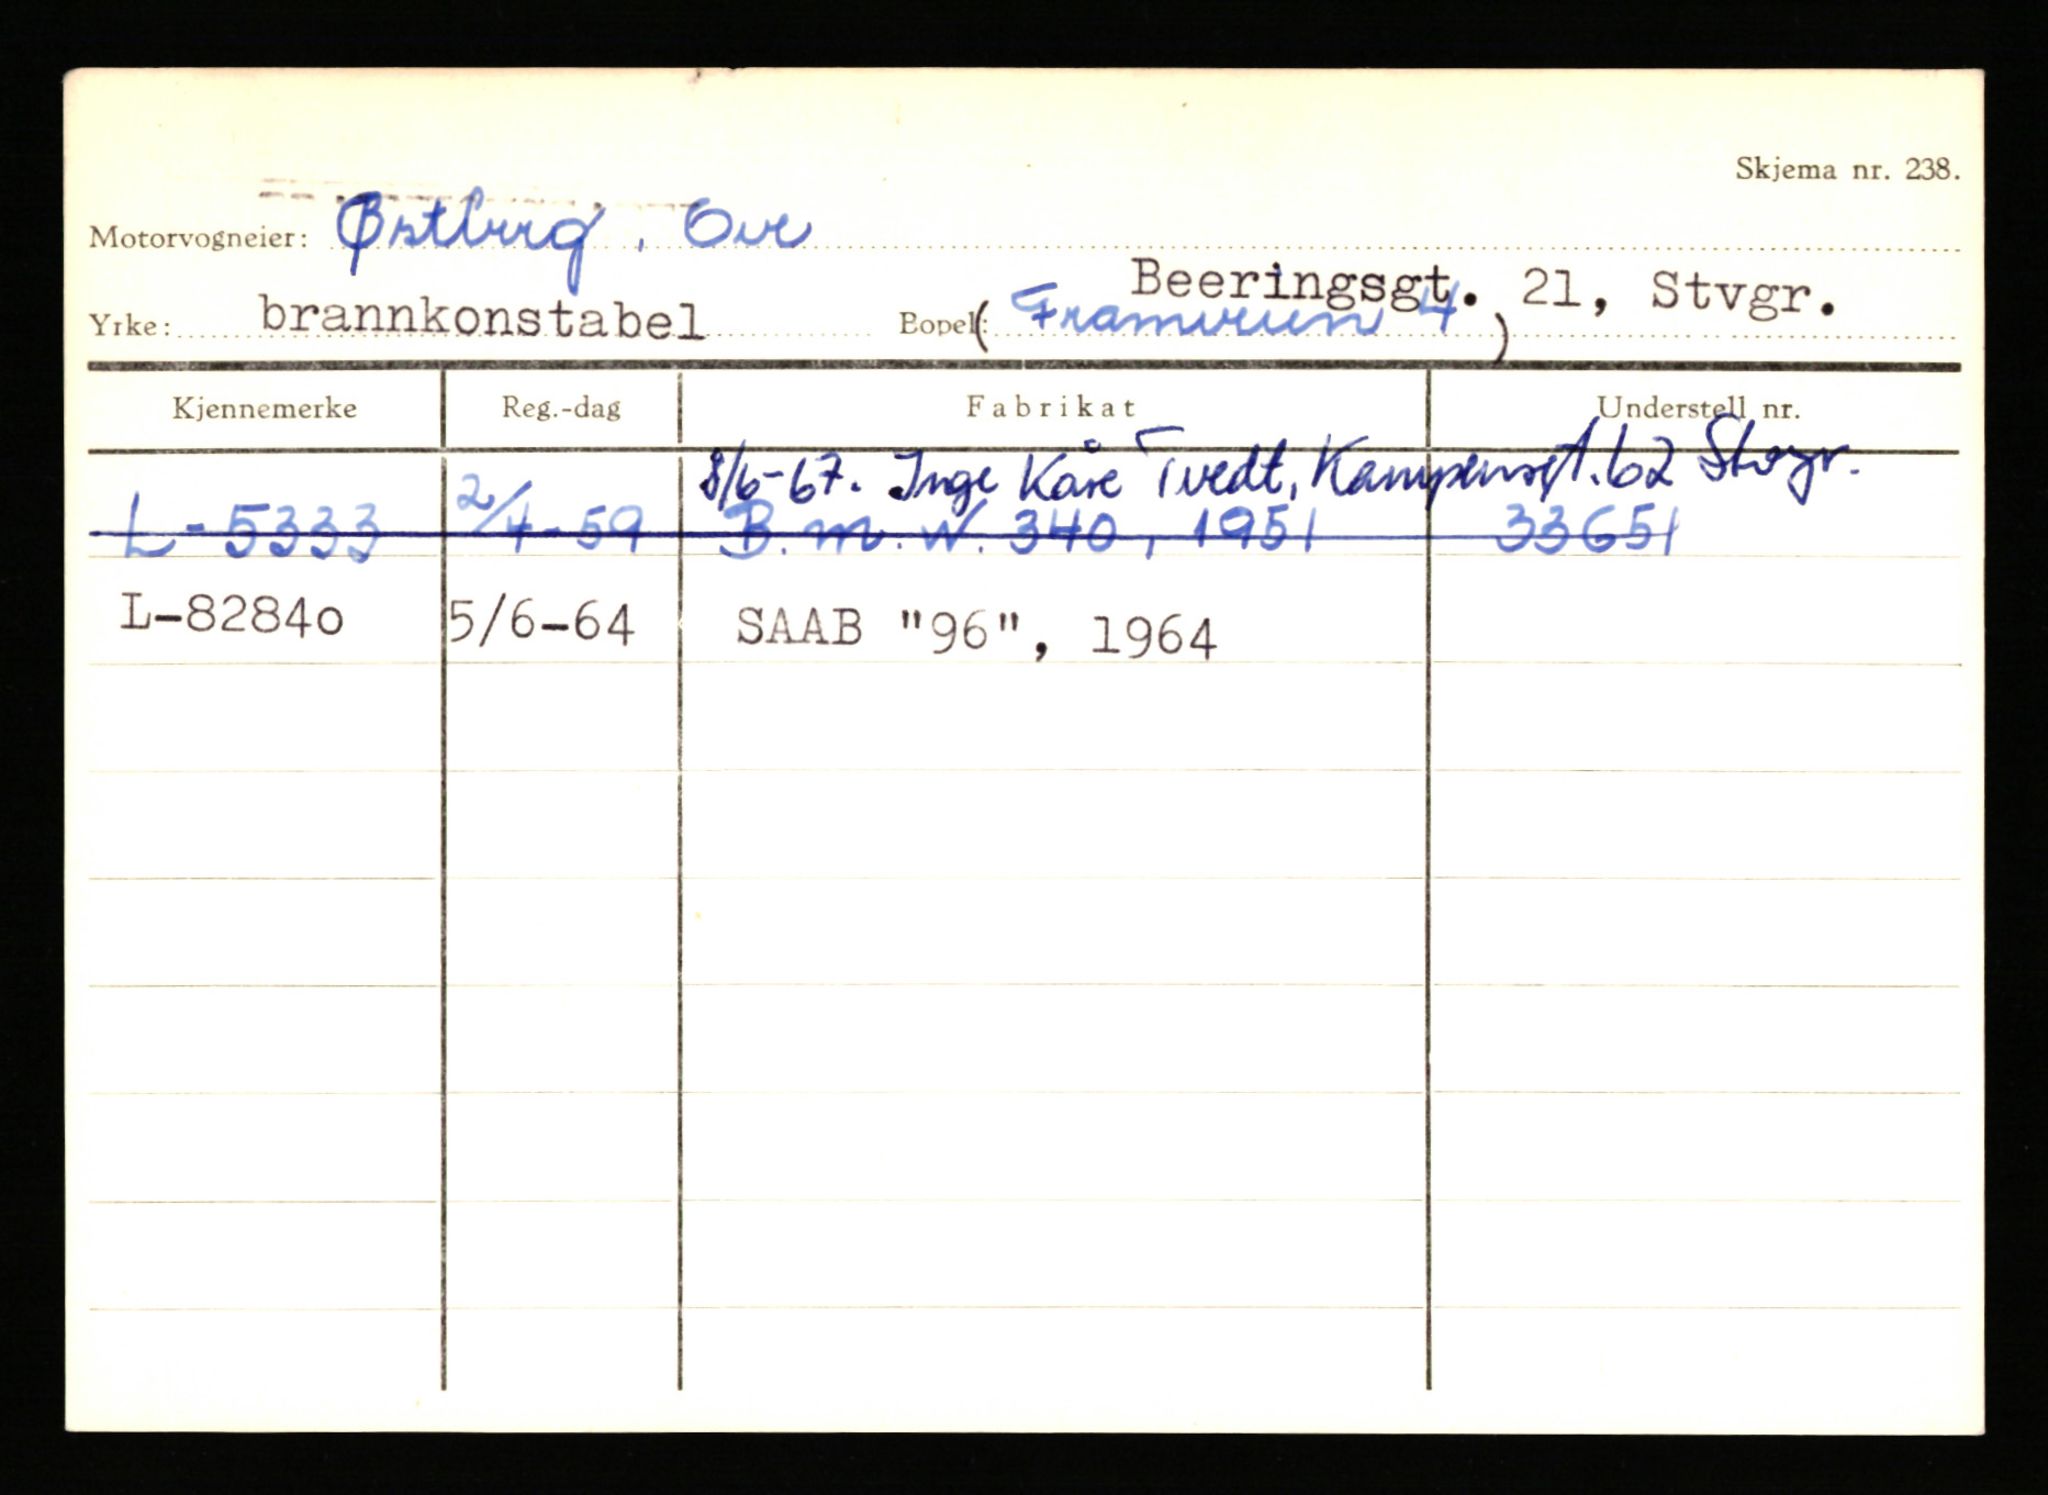 Skjema nr. 238.
Motorvogneier: Østberg, Ove
Beeringsgt. 21, Stvgr.
Yrke: brannkonstabel Bopel: (Framveien 4)
Kjennemerke Reg.-dag Fabrikat Understell nr.
8/6-67. Inge Kåre Tvedt, Kampensgt. 62 Stvgr.
L-5333 2/4-59 B.M.W. 340, 1951 33651
L-82840 5/6-64 SAAB "96", 1964